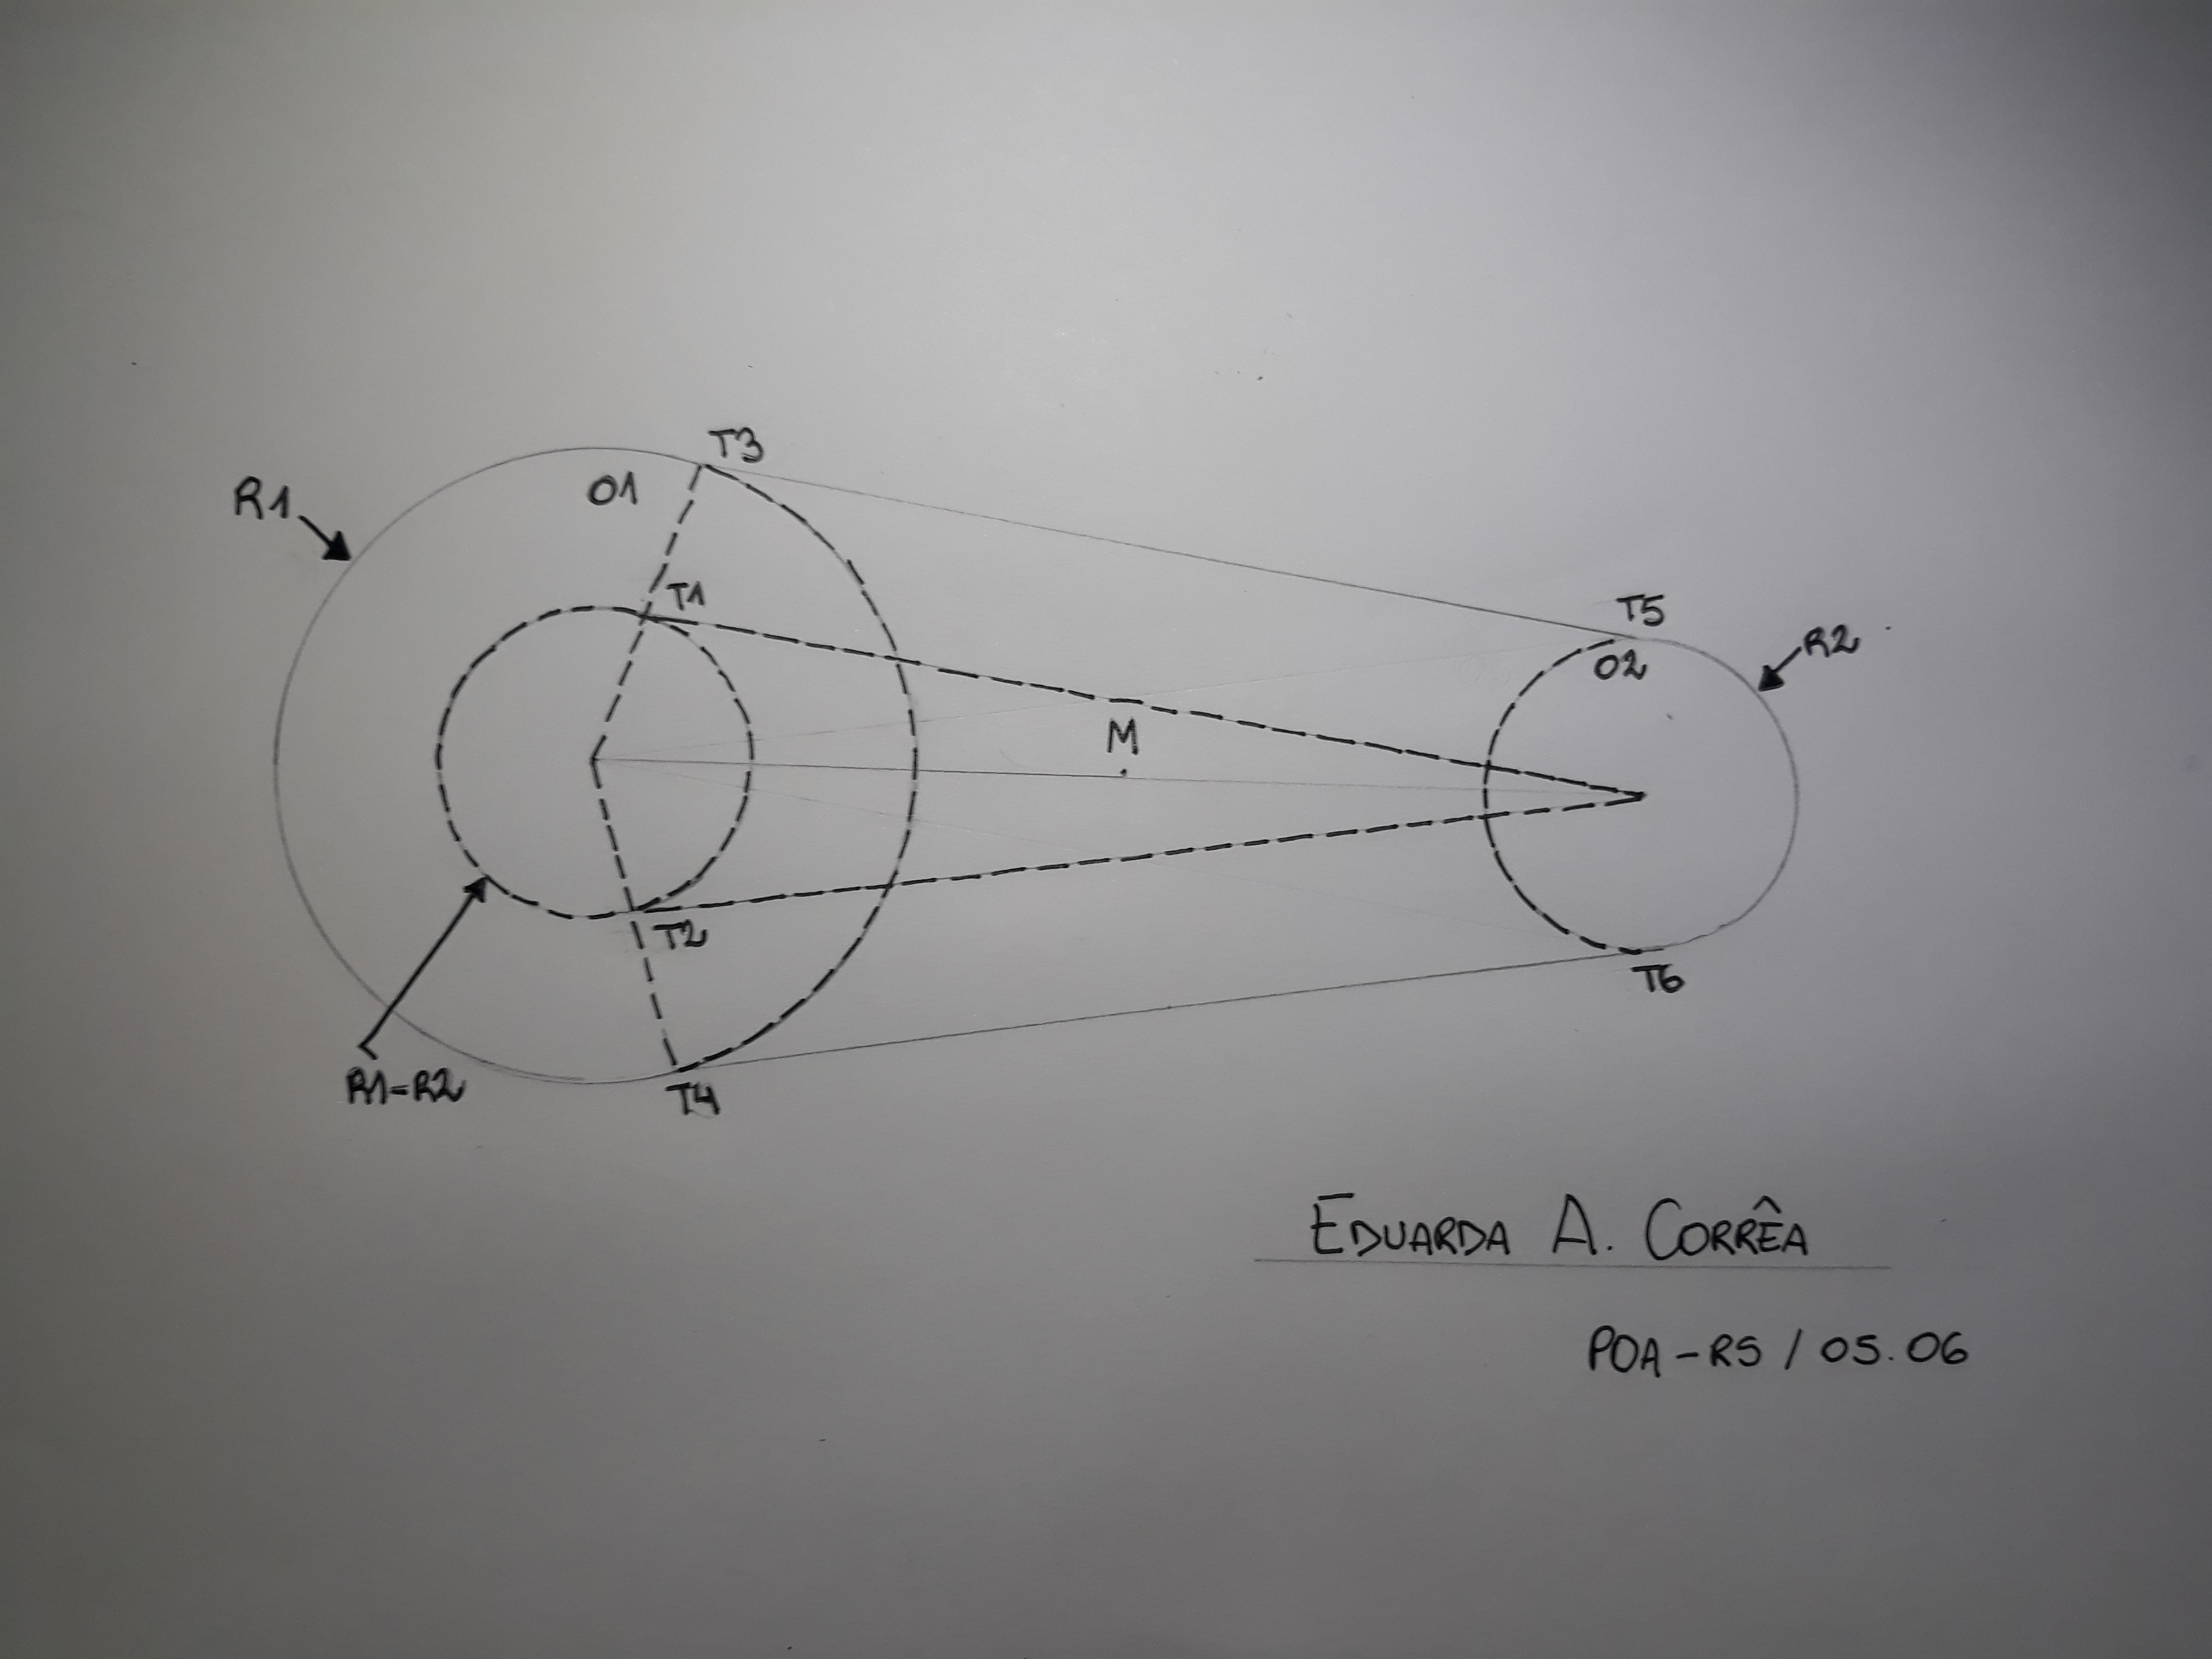 T3
O1
R1
T1
T5
O2
R2
M
T2
T6
R1-R2
T4
EDUARDA A. CORRÊA
POA-RS / 05.06